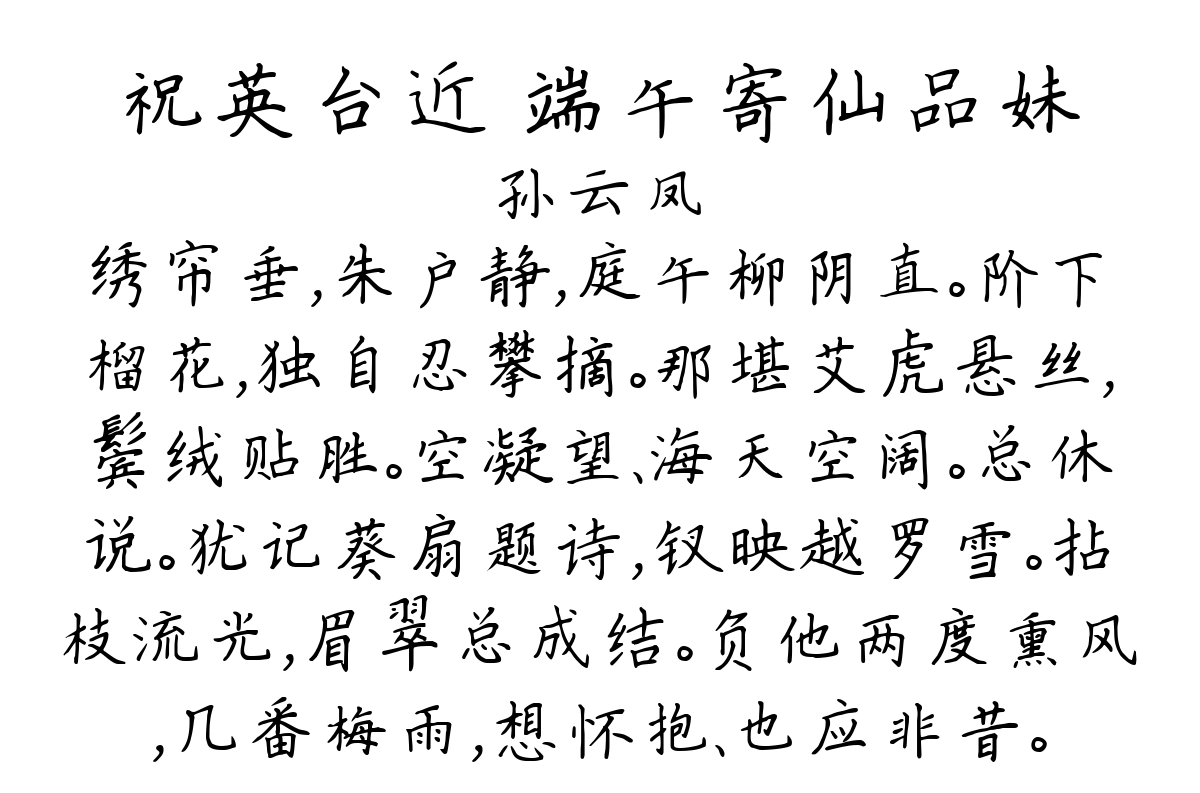 祝英台近 端午寄仙品妹
孙云凤
绣帘垂,朱户静,庭午柳阴直。阶下
榴花,独自忍攀摘。那堪艾虎悬丝,
鬓绒贴胜。空凝望、海天空阔。总休
说。犹记葵扇题诗,钗映越罗雪。拈
枝流光,眉翠总成结。负他两度熏风
,几番梅雨,想怀抱、也应非昔。